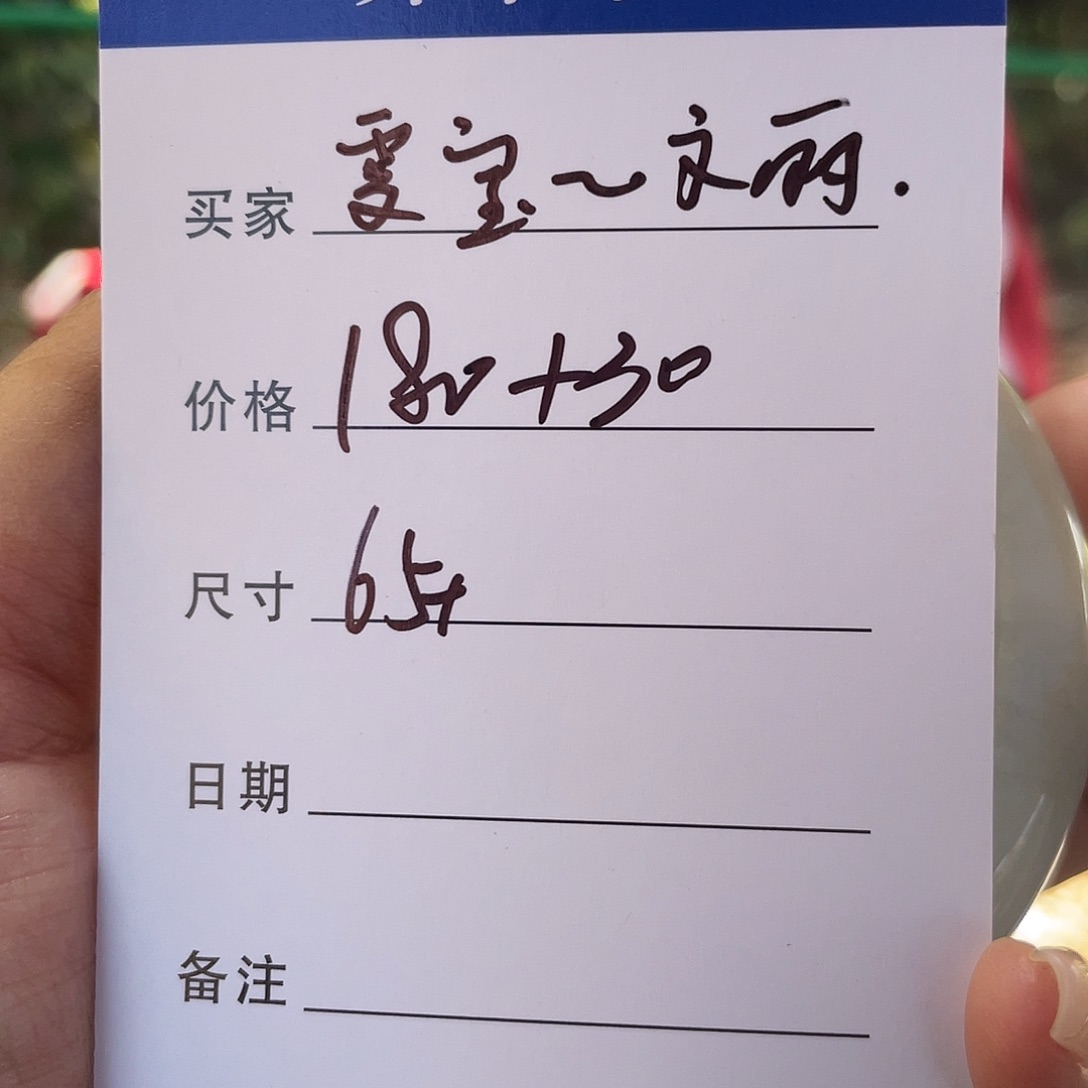 买家 雯宝~文丽.
价格 180+30
尺寸 65+
日期
备注